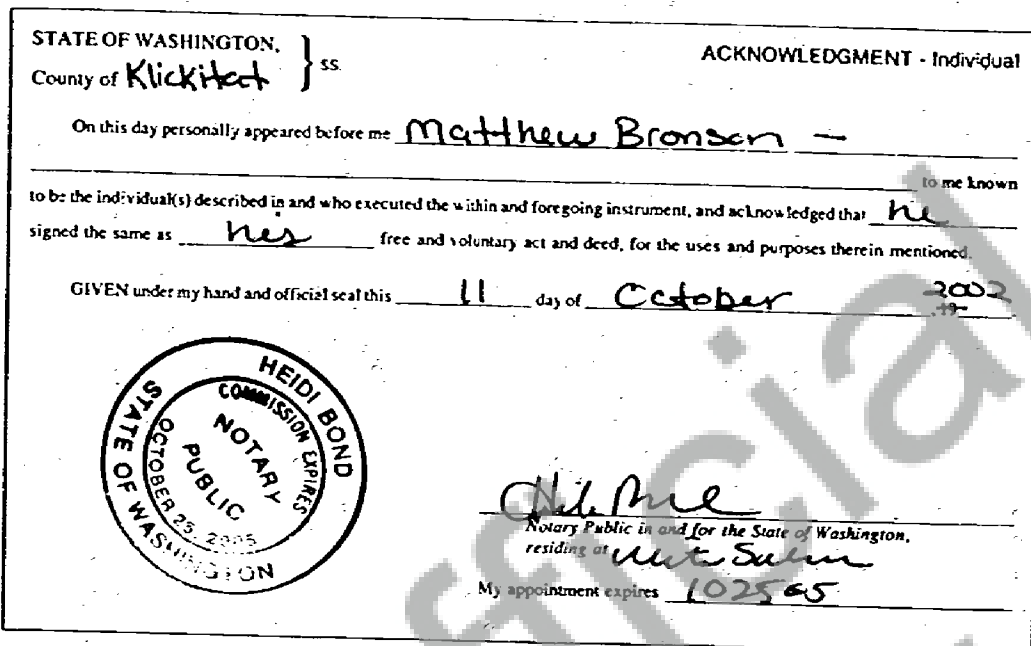 STATE OF WASHINGTON,
County of Klickitat } ss.
ACKNOWLEDGMENT - Individual
On this day personally appeared before me Matthew Bronson —
to me known
to be the individual(s) described in and who executed the within and foregoing instrument, and acknowledged that he
signed the same as his free and voluntary act and deed, for the uses and purposes therein mentioned.
GIVEN under my hand and official seal this 11 day of October 2002
, 19
HEIDI BOND
STATE OF WASHINGTON
COMMISSION EXPIRES
OCTOBER 25, 2005
NOTARY
PUBLIC
Notary Public in and for the State of Washington,
residing at White Salmon
My appointment expires 102505
fficial